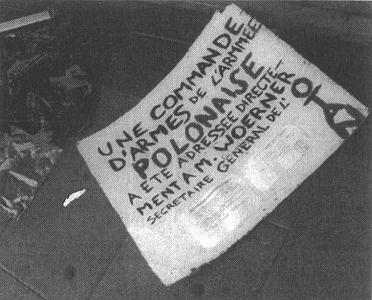 UNE COMMANDE
D'ARMES DE L'ARMMÉE
POLONAISE
A ETE ADRESSÉE DIRECTE-
MENT A M. WOERNER
SECRETAIRE GENERAL DE L'